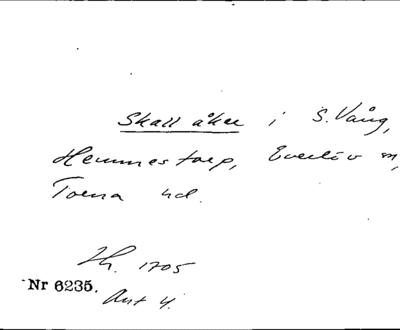 Skall åker i S. Vång,
Hemmestorp, Everlöv sn,
Torna hd.
Lh. 1705
Nr 6235.
Ant 4.